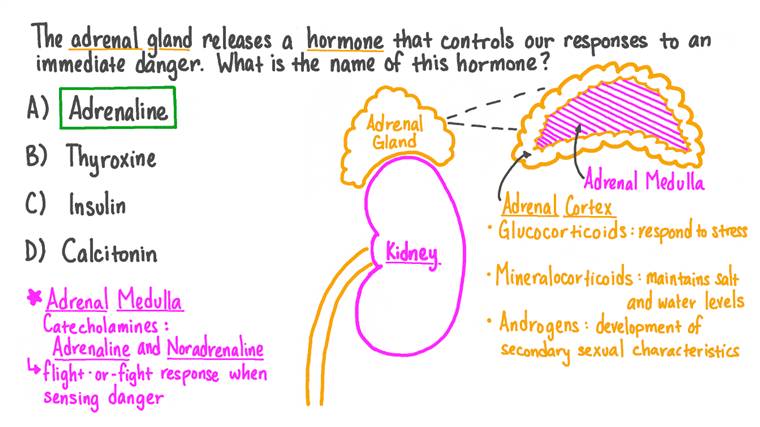 The adrenal gland releases a hormone that controls our responses to an
immediate danger. What is the name of this hormone?
A) Adrenaline
B) Thyroxine
C) Insulin
D) Calcitonin
* Adrenal Medulla
Catecholamines:
Adrenaline and Noradrenaline
↳ flight-or-fight response when
sensing danger
Adrenal
Gland
Kidney
Adrenal Medulla
Adrenal Cortex
• Glucocorticoids: respond to stress
• Mineralocorticoids: maintains salt
and water levels
• Androgens: development of
secondary sexual characteristics